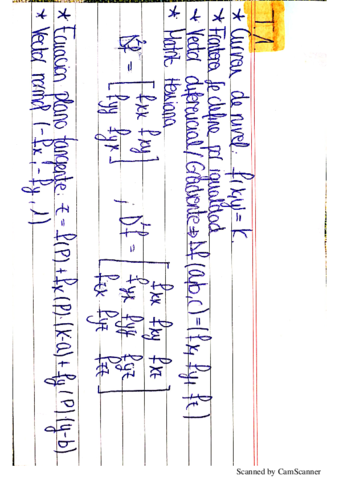 T.1
* Curvas de nivel: f(x,y) = K.
* Frontera se define por igualdad
* Vector diferencial/Gradiente ⇒ Δf(a,b,c) = (fx, fy, fz)
* Matriz Hessiana
D²f = [fxx fxy
fyy fyx] ; D²f = [fxx fxy fxz
fyx fyy fyz
fzx fyz fzz]
* Ecuación plano tangente: z = f(P) + fx(P)·(x-a) + fy(P)(y-b)
* Vector normal (-fx, -fy, 1)
Scanned by CamScanner